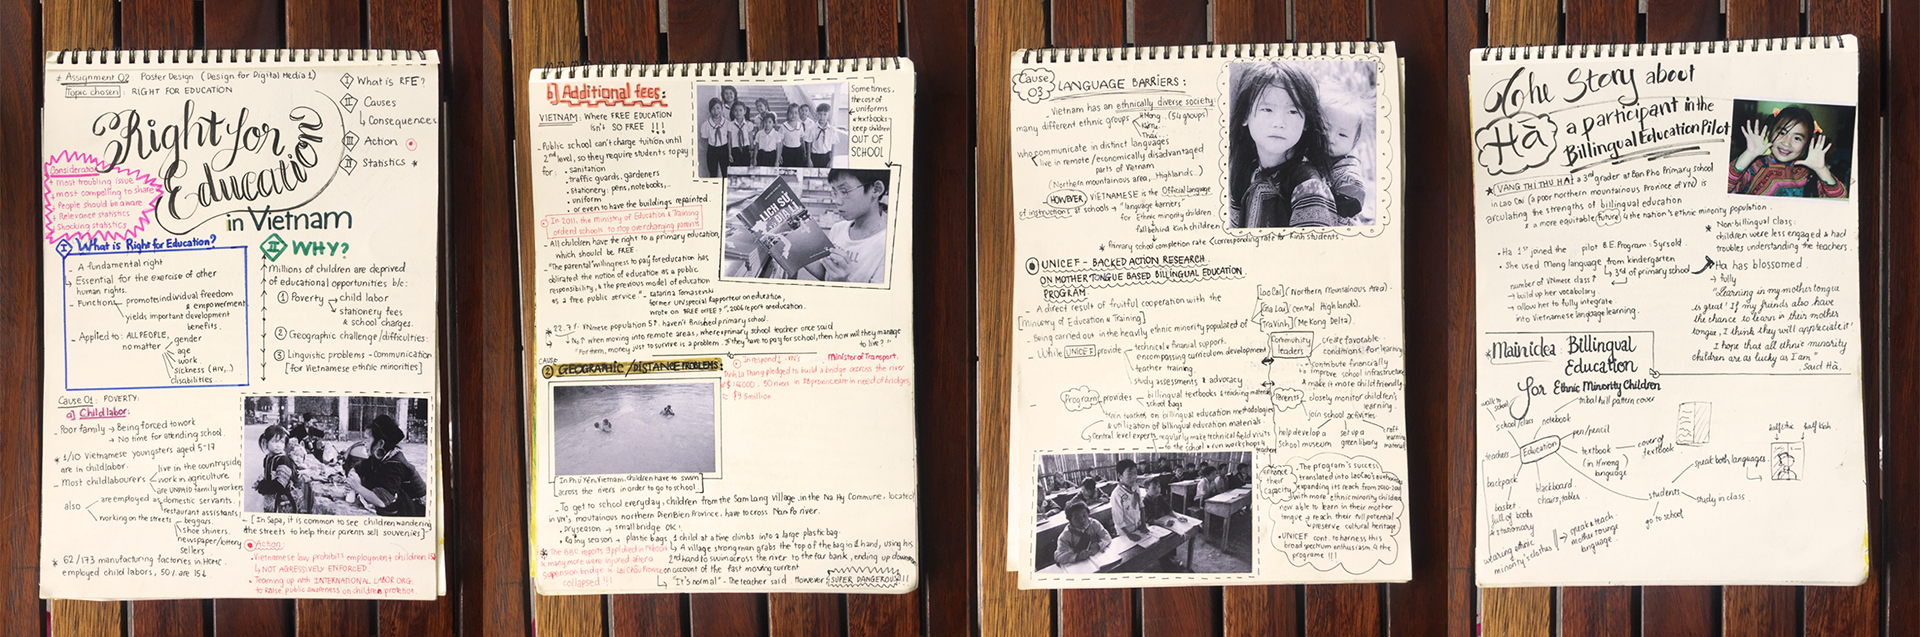 # Assignment 02 Poster Design (Design for Digital Media 1)
Topic chosen: RIGHT FOR EDUCATION
I What is RFE?
II Causes
↳ Consequences
III Action
IV Statistics *
Right for
Education
in Vietnam
Consideration
+ Most troubling issue
. most compelling to share
+ People should be aware
. Relevance statistics
- Shocking statistics
I What is Right for Education?
- A fundamental right
- Essential for the exercise of other
human rights.
- Functions promotes individual freedom
& empowerment
yields important development
benefits.
- Applied to: ALL PEOPLE,
no matter gender
age
work
sickness (HIV,..)
disabilities.
II WHY?
Millions of children are deprived
of educational opportunities b/c:
① Poverty child labor
stationery fees
& school charges.
② Geographic challenge/difficulties:
③ Linguistic problems - Communication
[for Vietnamese ethnic minorities]
Cause 01: POVERTY:
a) Child labor:
- Poor family → Being forced to work
→ No time for attending school.
* 1/10 Vietnamese youngsters aged 5-17
are in child labor.
- Most child labourers live in the countryside
work in agriculture
are UNPAID family workers
also are employed as domestic servants.
restaurant assistants
working on the streets beggars.
shoe shiners.
newspaper/lottery
sellers
* 62/173 manufacturing factories in HCMC.
employed child labors,
[In Sapa, it is common to see children wandering
the streets to help their parents sell souvenirs]
Action:
- Vietnamese law prohibits employment children
↳ NOT AGRESSIVELY ENFORCED.
- Teaming up with INTERNATIONAL LABOR ORG.
to raise public awareness on children protection.
b) Additional fees:
VIETNAM: Where FREE EDUCATION
isn't SO FREE !!!
- Public school can't charge tuition until
2nd level, so they require students to pay
for: • sanitation
• traffic guards, gardeners
• stationery: pens, notebooks,..
• uniform
• or even to have the buildings repainted.
Sometimes,
the cost of
uniforms
& textbooks
keep children
OUT OF
SCHOOL
LỊCH SỬ
In 2011, the ministry of Education & Training
ordered schools to stop overcharging parents
- All children have the right to a primary education,
which should be FREE.
- "The parental willingness to pay for education has
the notion of education as a public
responsibility, & the previous model of education
as a free public service" - Katarina Tomasevski
former UN special Rapporteur on education,
wrote on "FREE or FEE?", 2006 report on education.
haven't finished primary school.
when moving into remote areas, where primary school teacher once said
"For them, money just to survive is a problem. If they have to pay for school, then how will they manage
to live?"
CAUSE
② GEOGRAPHIC/DISTANCE PROBLEMS:
In respond, VN's Minister of Transport,
Dinh La Thang pledged to build a bridge across the river
In Phú Yên, Vietnam, children have to swim
across the rivers in order to go to school
- To get to school everyday, children from the Sam Lang village, in the Na Hy Commune, located
in VN's moutainous northern Dien Bien Province, have to cross Nam Po river.
• Dry season → small bridge
• Rainy season → plastic bags: 1 child at a time climbs into a large plastic bag.
↳ A village strongman grabs the top of the bag in 1 hand, using his
2nd hand to swim across the river to the far bank, ending up downriver
on account of the fast moving current
↳ "It's normal" - The teacher said. However SUPER DANGEROUS!!!
& many more were injured after a
supension bridge in Lai Châu Province
collapsed !!!
Cause
03 LANGUAGE BARRIERS:
- Vietnam has an ethnically diverse society:
many different ethnic groups H'Mong.. (54 groups)
Kinh..
Thái...
who communicate in distinct languages
live in remote / economically disadvantaged
parts of Vietnam
(Northern mountainous area, Highlands..)
HOWEVER, VIETNAMESE is the Official language
of instructions at schools → "language barriers"
for Ethnic minority children
fall behind Kinh children
* Primary school completion rate < corresponding rate for Kinh students.
UNICEF - BACKED ACTION RESEARCH
ON MOTHER TONGUE BASED BILLINGUAL EDUCATION
PROGRAM:
- A direct result of fruitful cooperation with the
[Ministry of Education & Training]
- Being carried in the heavily ethnic minority populated of
[Lao Cai] (Northern Mountainous Area).
[Gia Lai] (Central Highlands).
[Tra Vinh] (Me Kong Delta).
- While UNICEF provide technical & financial support.
encompassing curriculum development
teacher training.
study assessments & advocacy
Community
leaders create favorable
conditions for learning
contribute financially
to improve school infrastructure
& make it more child friendly.
Program provides billingual textbooks & teaching materials
school bags
train teachers on billingual education methodologies
& utilization of billingual education materials.
Central level experts regularly make technical field visits
to the school & run workshops
Parents closely monitor children's
learning.
join school activities.
help develop a
School museum
set up a
green library
craft
learning
material
enhance
their
capacity
. The program's success
translated into Lao Cai's authorities
expanding its reach from
with more ethnic minority children
now able to learn in their mother
tongue & reach their full potential
preserve cultural heritage
• UNICEF cont. to harness this
broad spectrum enthusiasm 4 the
programme !!!
The Story about
Hà a participant in the
Billingual Education Pilot
* VANG THI THU HA: a 3rd grader at Ban Pho Primary school
in Lao Cai (a poor northern mountainous Province of VN) is
articulating the strengths of billingual education
& a more equitable future 4 the nation's ethnic minority population.
• Ha 1st joined the pilot B.E. Program: 5yrs old.
• She used Mong language from kindergarten
↳ 3rd of primary school
number of VNmese class ↑
→ build up her vocabulary
→ allow her to fully integrate
into Vietnamese language learning.
* Non-billingual class:
children were less engaged & had
troubles understanding the teachers.
Ha has blossomed
fully
"Learning in my mother tongue
is great! If my friends also have
the chance to learn in their mother
tongue, I think they will appreciate it!
I hope that all ethnic minority
children are as lucky as I am".
Said Hà.
*Main idea: Billingual
Education
for Ethnic Minority Children
Education
walk to
school
school/class
notebook
tribal hill pattern cover
pen/pencil
textbook
(in H'mong
language)
cover of
textbook
teachers
backpack
basket
full of books
& stationary
blackboard
chairs, tables.
students
speak both languages
study in class
go to school
half ethnic
half Kinh
wearing ethnic
minority's clothes
speak & teach
mother tongue
language